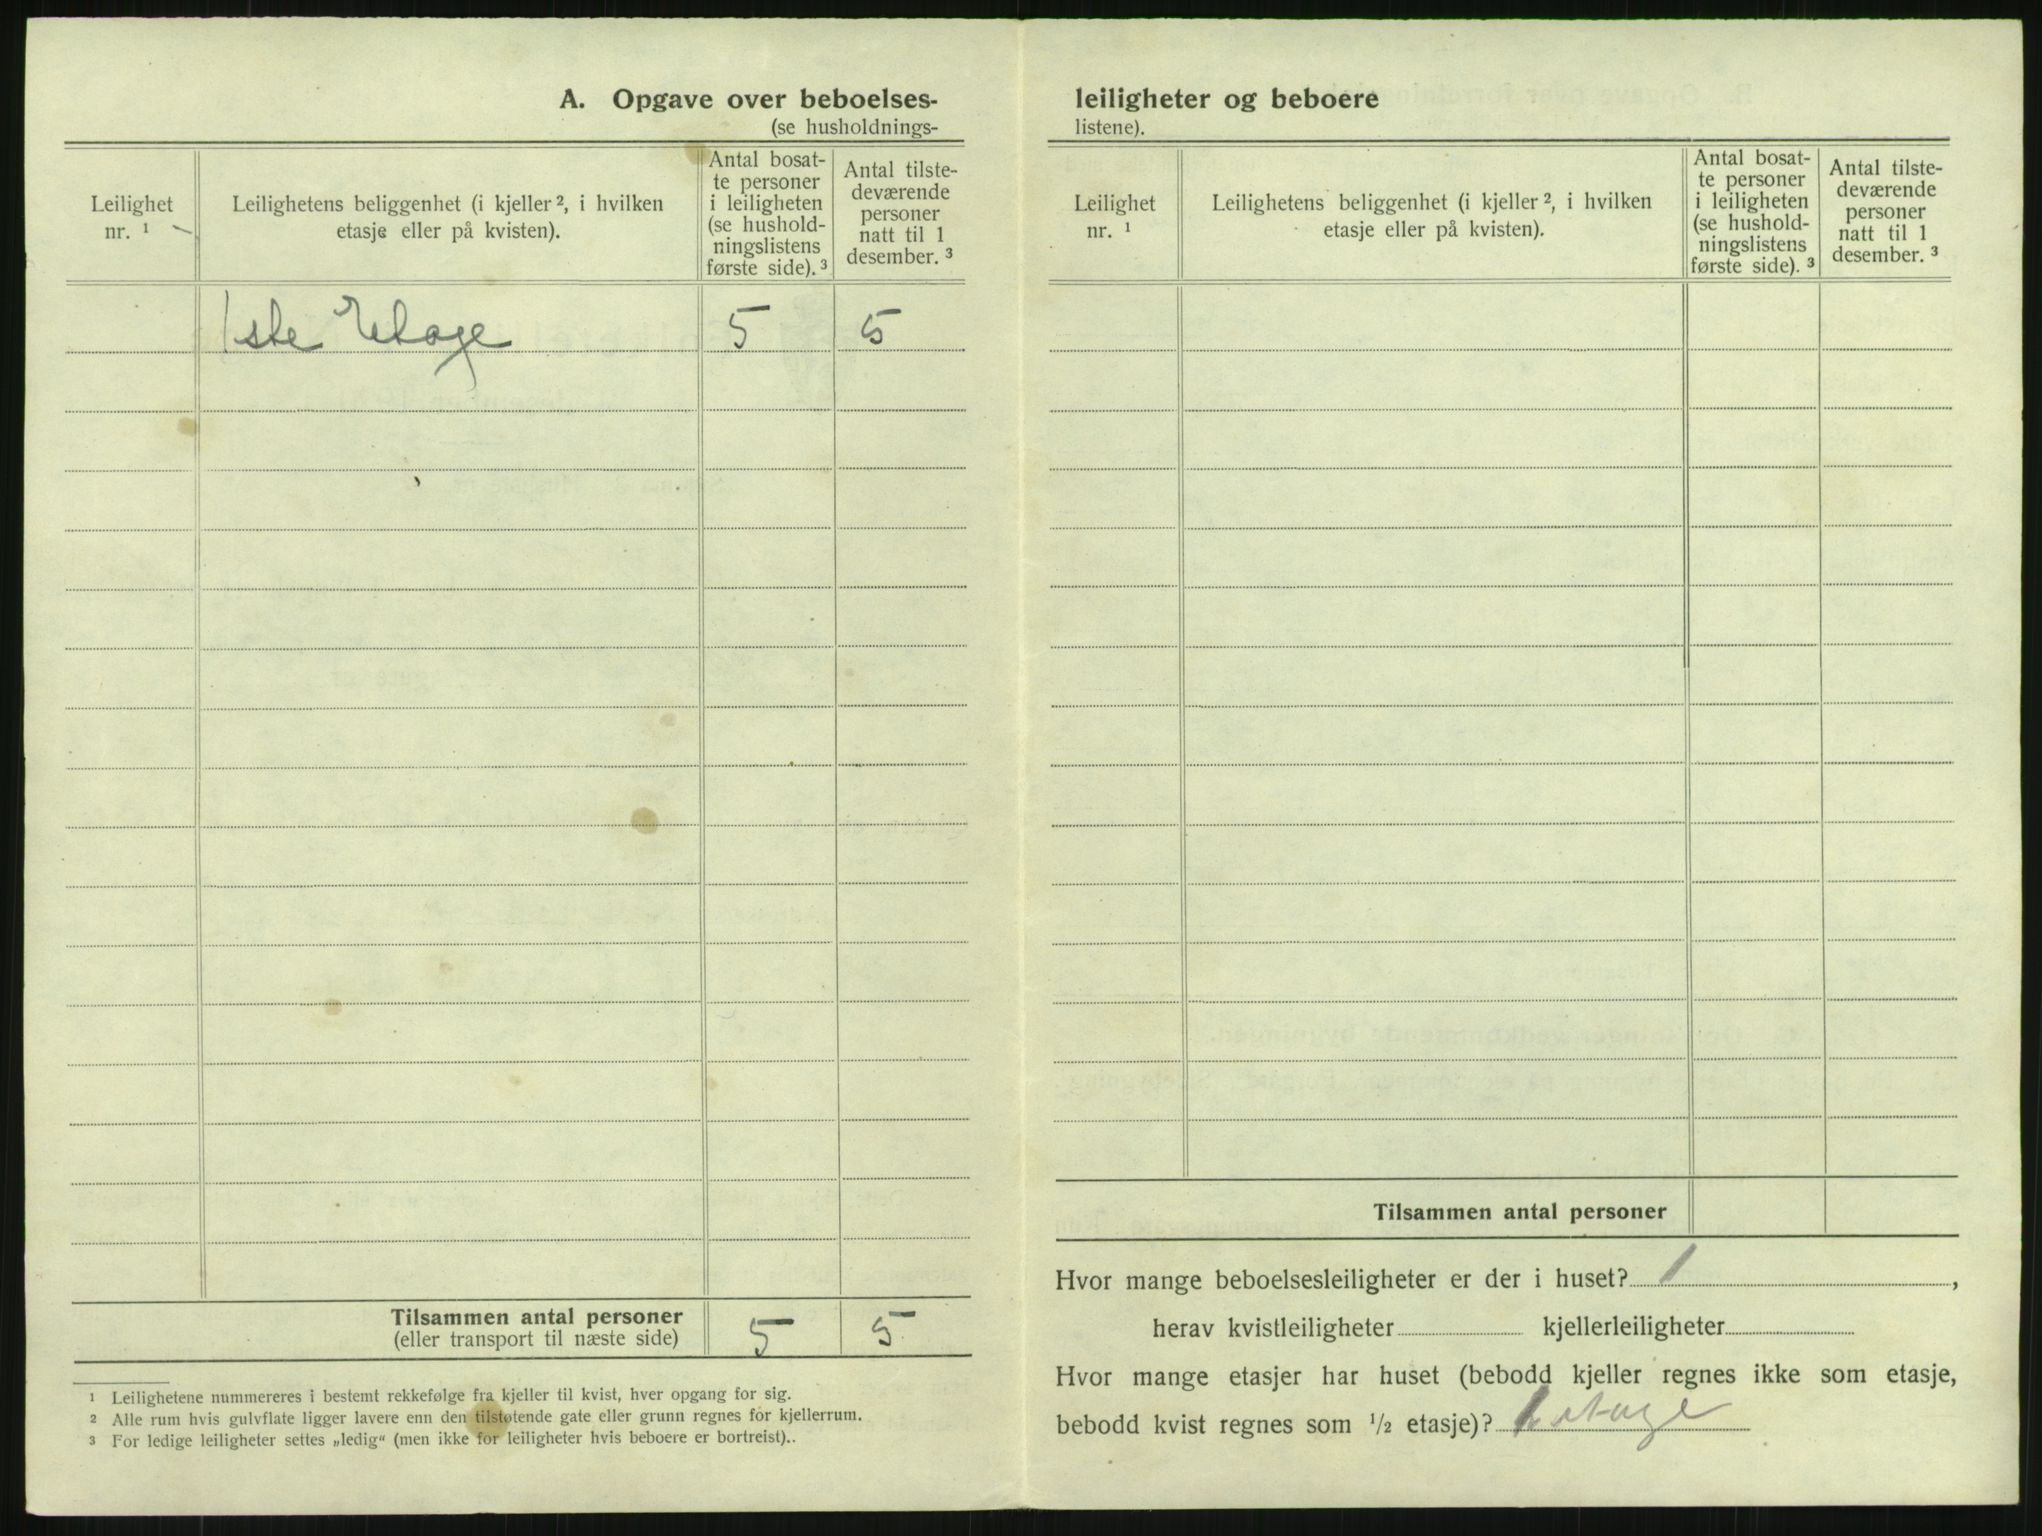 A. Opgave over beboelses-
(se husholdnings-
Leilighet
nr. ¹
Leilighetens beliggenhet (i kjeller ², i hvilken
etasje eller på kvisten).
Antal bosat-
te personer
i leiligheten
(se hushold-
ningslistens
første side). ³
Antal tilste-
deværende
personer
natt til 1
desember. ³
1ste Etage 5 5
Tilsammen antal personer 5 5
(eller transport til næste side)
¹ Leilighetene nummereres i bestemt rekkefølge fra kjeller til kvist, hver opgang for sig.
² Alle rum hvis gulvflate ligger lavere enn den tilstøtende gate eller grunn regnes for kjellerrum.
³ For ledige leiligheter settes „ledig“ (men ikke for leiligheter hvis beboere er bortreist)..
leiligheter og beboere
listene).
Leilighet
nr. ¹
Leilighetens beliggenhet (i kjeller ², i hvilken
etasje eller på kvisten).
Antal bosat-
te personer
i leiligheten
(se hushold-
ningslistens
første side). ³
Antal tilste-
deværende
personer
natt til 1
desember. ³
Tilsammen antal personer
Hvor mange beboelsesleiligheter er der i huset? 1,
herav kvistleiligheter kjellerleiligheter
Hvor mange etasjer har huset (bebodd kjeller regnes ikke som etasje,
bebodd kvist regnes som ½ etasje)? 1 etage